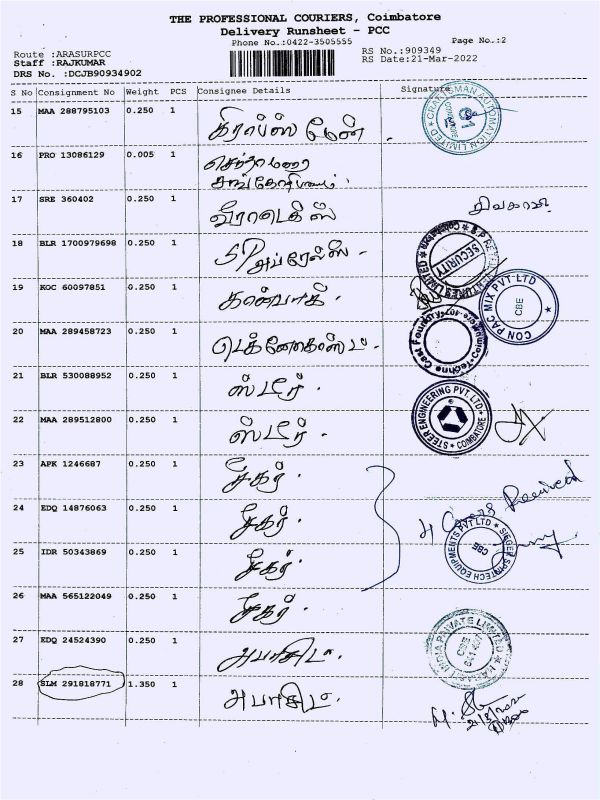 THE PROFESSIONAL COURIERS, Coimbatore
Delivery Runsheet - PCC
Phone No.:0422-3505555
Page No.:2
Route :ARASURPCC
Staff :RAJKUMAR
DRS No. :DCJB90934902
RS No.:909349
RS Date:21-Mar-2022
S No Consignment No Weight PCS Consignee Details Signature
15 MAA 288795103 0.250 1 கிராப்ஸ் மேன்
16 PRO 13086129 0.005 1 செந்தாமரை
17 SRE 360402 0.250 1 வீராடெக்ஸ் சிவகாமி
18 BLR 1700979698 0.250 1 SP அப்ரேல்ஸ்
19 KOC 60097851 0.250 1 கான்பாக்
20 MAA 289458723 0.250 1 டெக்னோகாஸ்ட்
21 BLR 530088952 0.250 1 ஸ்டீர்
22 MAA 289512800 0.250 1 ஸ்டீர்
23 APK 1246687 0.250 1 சீகர்
24 EDQ 14876063 0.250 1 சீகர்
25 IDR 50343869 0.250 1 சீகர்
26 MAA 565122049 0.250 1 சீகர்
4 Covers Received
27 EDQ 24524390 0.250 1
28 SLM 291818771 1.350 1
CRAFTSMAN AUTOMATION LIMITED
SECURITY
CON PAC MIX PVT LTD
CBE
Techno Cast Foundry
STEER ENGINEERING PVT. LTD
COIMBATORE
SIEGER SPINTECH EQUIPMENTS PVT LTD
CBE
INDIA PRIVATE LIMITED
CBE
21/3/2022